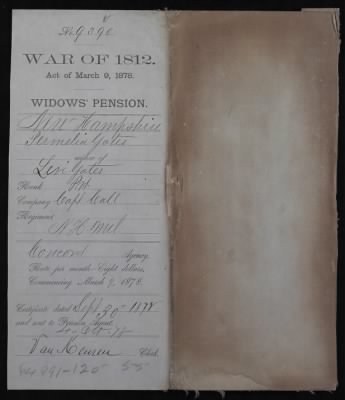 No. 9390
WAR OF 1812.
Act of March 9, 1878.
WIDOWS' PENSION.
New Hampshire
Permelia Gates
widow of
Levi Gates
Rank Pvt
Company Capt Call
Regiment
N H Mil
Concord Agency
Rate per month—Eight dollars,
Commencing March 9, 1878.
Certificate dated Sept 30" 1878
and sent to Pension Agent,
Van Keuren Clerk.
991-120